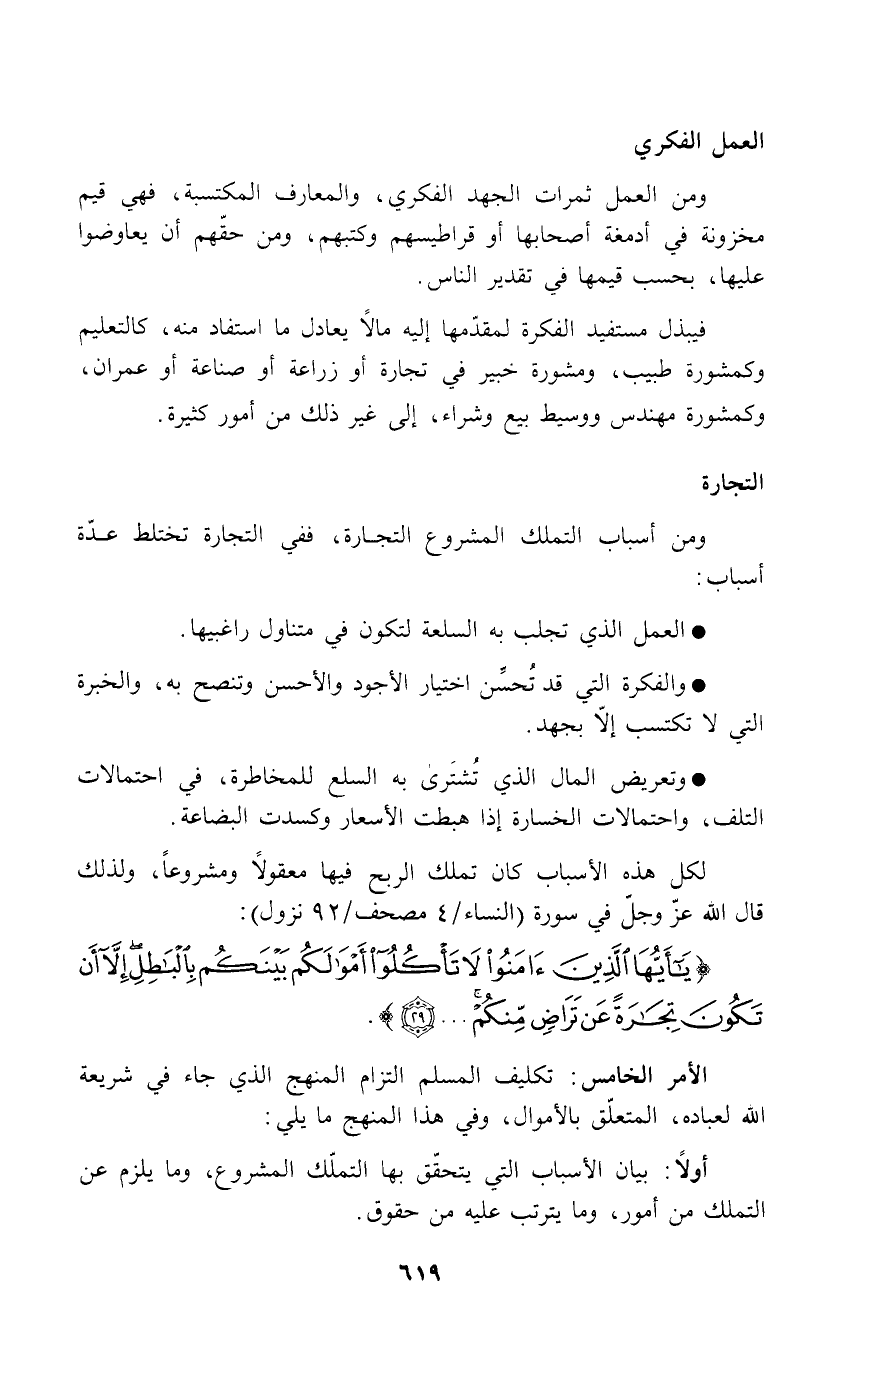 العمل الفكري
ومن العمل ثمرات الجهد الفكري، والمعارف المكتسبة، فهي قيم
مخزونة في أدمغة أصحابها أو قراطيسهم وكتبهم، ومن حقّهم أن يعاوضوا
عليها، بحسب قيمها في تقدير الناس.
فيبذل مستفيد الفكرة لمقدّمها إليه مالاً يعادل ما استفاد منه، كالتعليم
وكمشورة طبيب، ومشورة خبير في تجارة أو زراعة أو صناعة أو عمران،
وكمشورة مهندس ووسيط بيع وشراء، إلى غير ذلك من أمور كثيرة.
التجارة
ومن أسباب التملك المشروع التجارة، ففي التجارة تختلط عدّة
أسباب:
● العمل الذي تجلب به السلعة لتكون في متناول راغبيها.
● والفكرة التي قد تُحسِّن اختيار الأجود والأحسن وتنصح به، والخبرة
التي لا تكتسب إلّا بجهد.
● وتعريض المال الذي تُشتَرىٰ به السلع للمخاطرة، في احتمالات
التلف، واحتمالات الخسارة إذا هبطت الأسعار وكسدت البضاعة.
لكل هذه الأسباب كان تملك الربح فيها معقولاً ومشروعاً، ولذلك
قال الله عزّ وجلّ في سورة (النساء/٤ مصحف/٩٢ نزول):
﴿يَـٰٓأَيُّهَا ٱلَّذِينَ ءَامَنُوا۟ لَا تَأْكُلُوٓا۟ أَمْوَٰلَكُم بَيْنَكُم بِٱلْبَـٰطِلِ إِلَّآ أَن
تَكُونَ تِجَـٰرَةً عَن تَرَاضٍ مِّنكُمْ ۚ ... ٢٩﴾.
الأمر الخامس: تكليف المسلم التزام المنهج الذي جاء في شريعة
الله لعباده، المتعلّق بالأموال، وفي هذا المنهج ما يلي:
أولاً: بيان الأسباب التي يتحقّق بها التملّك المشروع، وما يلزم عن
التملك من أمور، وما يترتب عليه من حقوق.
٦١٩